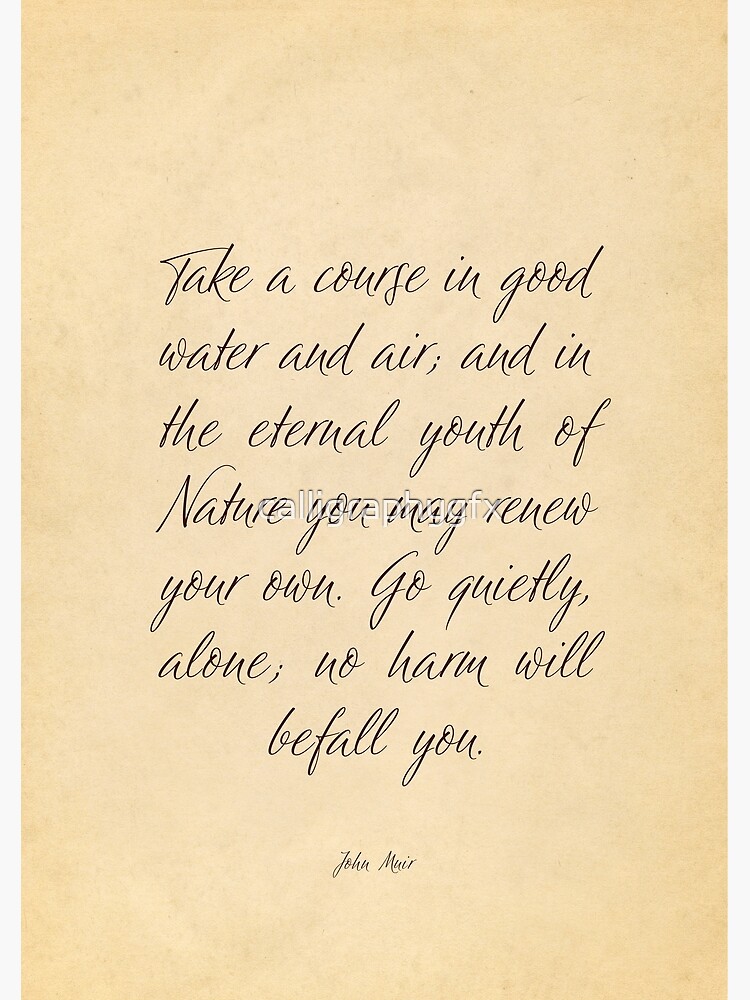 Take a course in good
water and air; and in
the eternal youth of
Nature you may renew
calligraphygfx
your own. Go quietly,
alone; no harm will
befall you.
John Muir